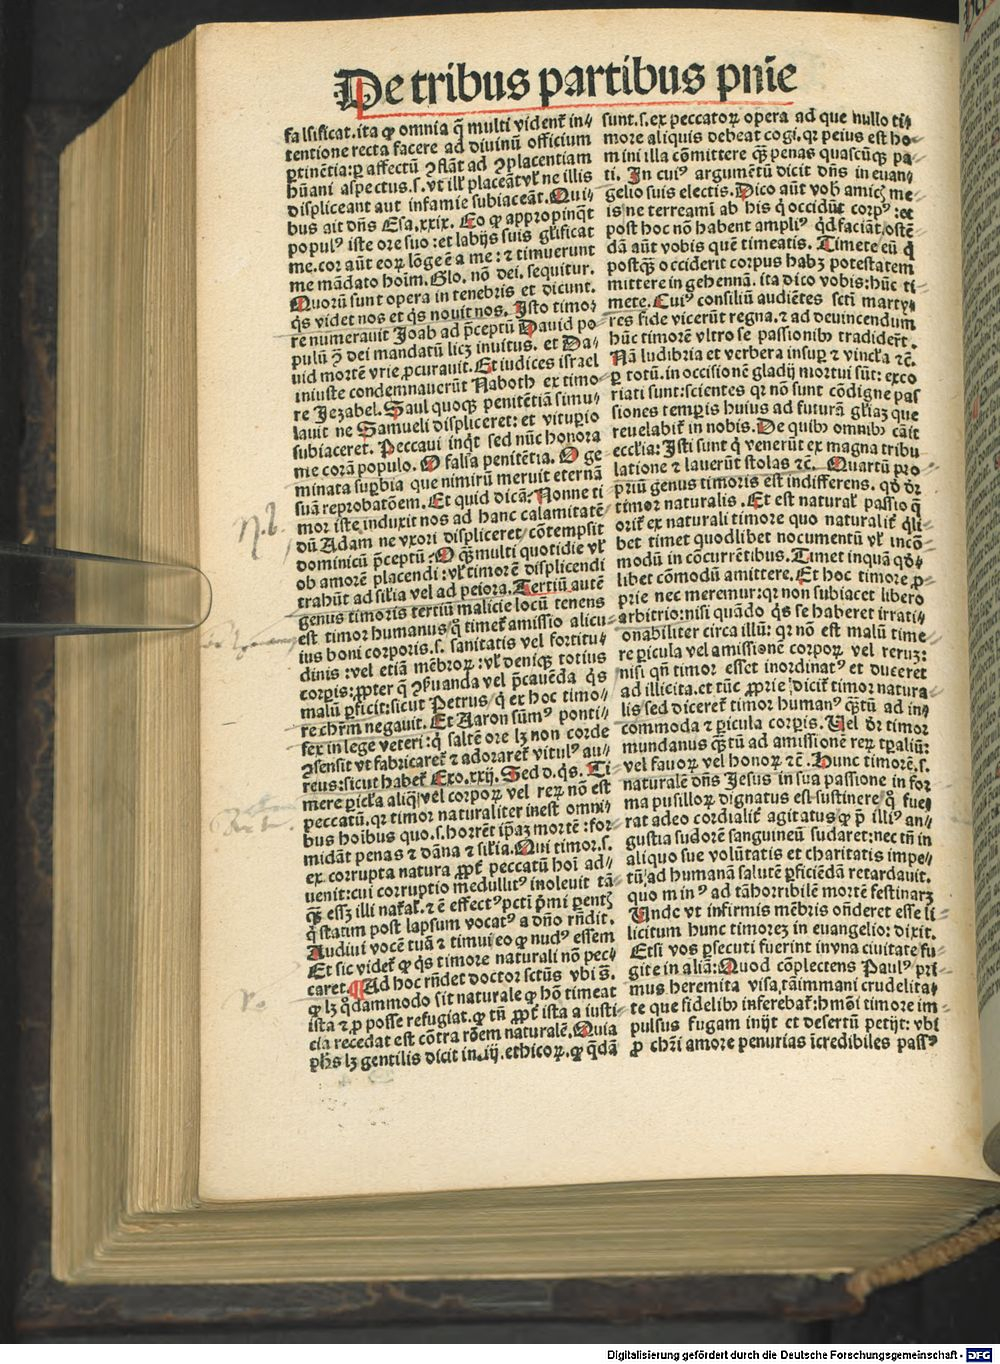 De tribus partibus pnīe
falsificat.ita ꝙ omnia q̄ multi vident̄ in⸗
tentione recta facere ad diuinū officium
ꝑtinētia:ꝑ affectū ꝯflāt ad ꝯplacentiam
hūani aspectus.s.vt illꝭ placeāt vl̄ ne illis
displiceant aut infamie subiaceāt.Qui⸗
bus ait dn̄s Esa.xxix. Eo ꝙ appropinq̄t
populꝰ iste ore suo:et labijs suis gl̄ificat
me.cor aūt eoꝝ lōge ē a me:⁊ timuerunt
me mādato hoīm.Glo. nō dei. sequitur.
Quorū sunt opera in tenebris et dicunt.
q̇s videt nos et q̇s nouit nos. Isto timo⸗
re numerauit Joab ad p̄ceptū Dauid po⸗
pulū ꝯ̄ dei mandatū licꝫ inuitus. et Da⸗
uid mortē vrie ꝓcurauit.Et iudices israel
iniuste condemnauerūt Naboth ex timo⸗
re Jezabel.Saul quoqꝫ penitētiā simu⸗
lauit ne Samueli displiceret:et vitupio
subiaceret. Peccaui inq̇t sed nūc honora
me corā populo. O falsa penitētia. O ge⸗
minata supbia que nimirū meruit eternā
suā reprobatōem.Et quid dicā:Nonne ti⸗
mor iste induxit nos ad hanc calamitatē
dū Adam ne vxori displiceret cōtempsit
dominicū p̄ceptū:O q̄ꝫ multi quotidie vl̄
ob amorē placendi:vl̄ timorē displicendi
trahūt ad sil̄ia vel ad peiora.Tertiū autē
genus timoris tertiū malicie locū tenens
est timor humanus q̇ timet̄ amissio alicu⸗
ius boni corporis.s. sanitatis vel fortitu⸗
dinis:vel etiā mēbroꝝ:vl̄ deniqꝫ totius
corpis:ꝓpter q̄ ꝯẜuanda vel p̄cauēda q̇s
malū ꝑficit:sicut Petrus q̇ ex hoc timo⸗
re chr̄m negauit.Et Aaron sūmꝰ ponti⸗
fex in lege veteri:q̇ saltē ore lꝫ non corde
ꝯsensit vt fabricaret̄ ⁊ adoraret̄ vitulꝰ au⸗
reus:sicut habet̄ Exo.xxij. Sed d.q̇s. Ti⸗
mere ꝑicl̄a aliq̇ vel corpoꝝ vel reꝝ nō est
peccatū.qꝛ timor naturaliter inest omni⸗
bus hoibus quo.s.horrēt ip̄aꝫ mortē:for⸗
midāt penas ⁊ dāna ⁊ sil̄ia.Qui timor.s.
ex corrupta natura ꝓpt̄ peccatū hoī ad⸗
uenit:cui corruptio medullitꝰ inoleuit tā⸗
q̄ꝫ essꝫ illi nat̄al̄.⁊ ē effectꝰ pcti p̄mi ꝑentꝭ
q̇ statim post lapsum vocatꝰ a dn̄o rn̄dit.
Audiui vocē tuā ⁊ timui eo ꝙ nudꝰ essem
Et sic videt̄ ꝙ q̇s timore naturali nō pec⸗
caret.¶Ad hoc rn̄det doctor sctūs vbi s̄.
ꝙ lꝫ q̇dammodo sit naturale ꝙ hō timeat
ista ⁊ ꝓ posse refugiat.ꝙ tn̄ ꝓpt̄ ista a iusti⸗
cia recedat est cōtra rōem naturalē.Quia
ph̄s lꝫ gentilis dicit in.iij.ethicoꝝ.ꝙ q̇dā
sunt.s.ex peccatoꝝ opera ad que nullo ti⸗
more aliquis debeat cogi.qꝛ peius est ho⸗
mini illa cōmittere q̄ꝫ penas quascūqꝫ pa⸗
ti. In cuiꝰ argumētū dicit dn̄s in euan⸗
gelio suis electis.Dico aūt vob̄ amicꝭ me⸗
is ne terreamī ab his q̇ occidūt corpꝰ:et
post hoc nō habent ampliꝰ q̇d faciāt.ostē⸗
dā aūt vobis quē timeatis. Timete eū q̇
postq̄ꝫ occiderit corpus habꝫ potestatem
mittere in gehennā. ita dico vobis:hūc ti⸗
mete.Cuiꝰ consiliū audiētes sctī marty⸗
res fide vicerūt regna.⁊ ad deuincendum
hūc timorē vltro se passionibꝰ tradider̄t.
Nā ludibria et verbera insuꝑ ⁊ vincl̄a ⁊c̄.
ꝑ totū.in occisionē gladij mortui sūt:exco
riati sunt:scientes qꝛ nō sunt cōdigne pas
siones tempis huius ad futurā gl̄iaꝫ que
reuelabit̄ in nobis.De quibꝰ omnibꝰ cāit
eccl̄ia:Isti sunt q̇ venerūt ex magna tribu
latione ⁊ lauerūt stolas ⁊c̄. Quartū pro⸗
priū genus timoris est indifferens. qḋ dr̄
timor naturalis.Et est natural̄ passio q̄
orit̄ ex naturali timore quo naturalit̄ q̇li⸗
bet timet quodlibet nocumentū vl̄ incō⸗
modū in cōcurrētibus.Timet inquā qḋ⸗
libet cōmodū amittere.Et hoc timore ꝓ⸗
prie nec meremur:qꝛ non subiacet libero
arbitrio:nisi quādo q̇s se haberet irrati⸗
onabiliter circa illū: qꝛ nō est malū time⸗
re ꝑicula vel amissionē corpoꝝ vel reruꝫ:
nisi qn̄ timor esset inordinatꝰ et duceret
ad illicita.et tūc ꝓprie dicit̄ timor natura⸗
lis sed diceret̄ timor humanꝰ q̄tū ad in⸗
commoda ⁊ ꝑicula corpis. Uel dr̄ timor
mundanus q̄tū ad amissionē reꝝ tp̄aliū:
vel fauoꝝ vel honoꝝ ⁊c̄. Hunc timorē.s.
naturalē dn̄s Jesus in sua passione in for⸗
ma pusilloꝝ dignatus est sustinere q̇ fue⸗
rat adeo cordialit̄ agitatus ꝙ p̄ illiꝰ an⸗
gustia sudorē sanguineū sudaret:nec tn̄ in
aliquo sue volūtatis et charitatis impe⸗
tū ad humanā salutē ꝑficiēdā retardauit.
quo minꝰ ad tā horribilē mortē festinarꝫ
Unde vt infirmis mēbris on̄deret esse li⸗
licitum hunc timoreꝫ in euangelio:dixit.
Etsi vos ꝑsecuti fuerint in vna ciuitate fu⸗
gite in aliā:Quod cōplectens Paulꝰ pri⸗
mus heremita visa tā immani crudelita⸗
te que fidelibꝰ inferebat̄:hmōi timore im⸗
pulsus fugam inijt et desertū petijt: vbi
ꝓ chr̄i amore penurias īcredibiles passꝰ
Digitalisierung gefördert durch die Deutsche Forschungsgemeinschaft - DFG